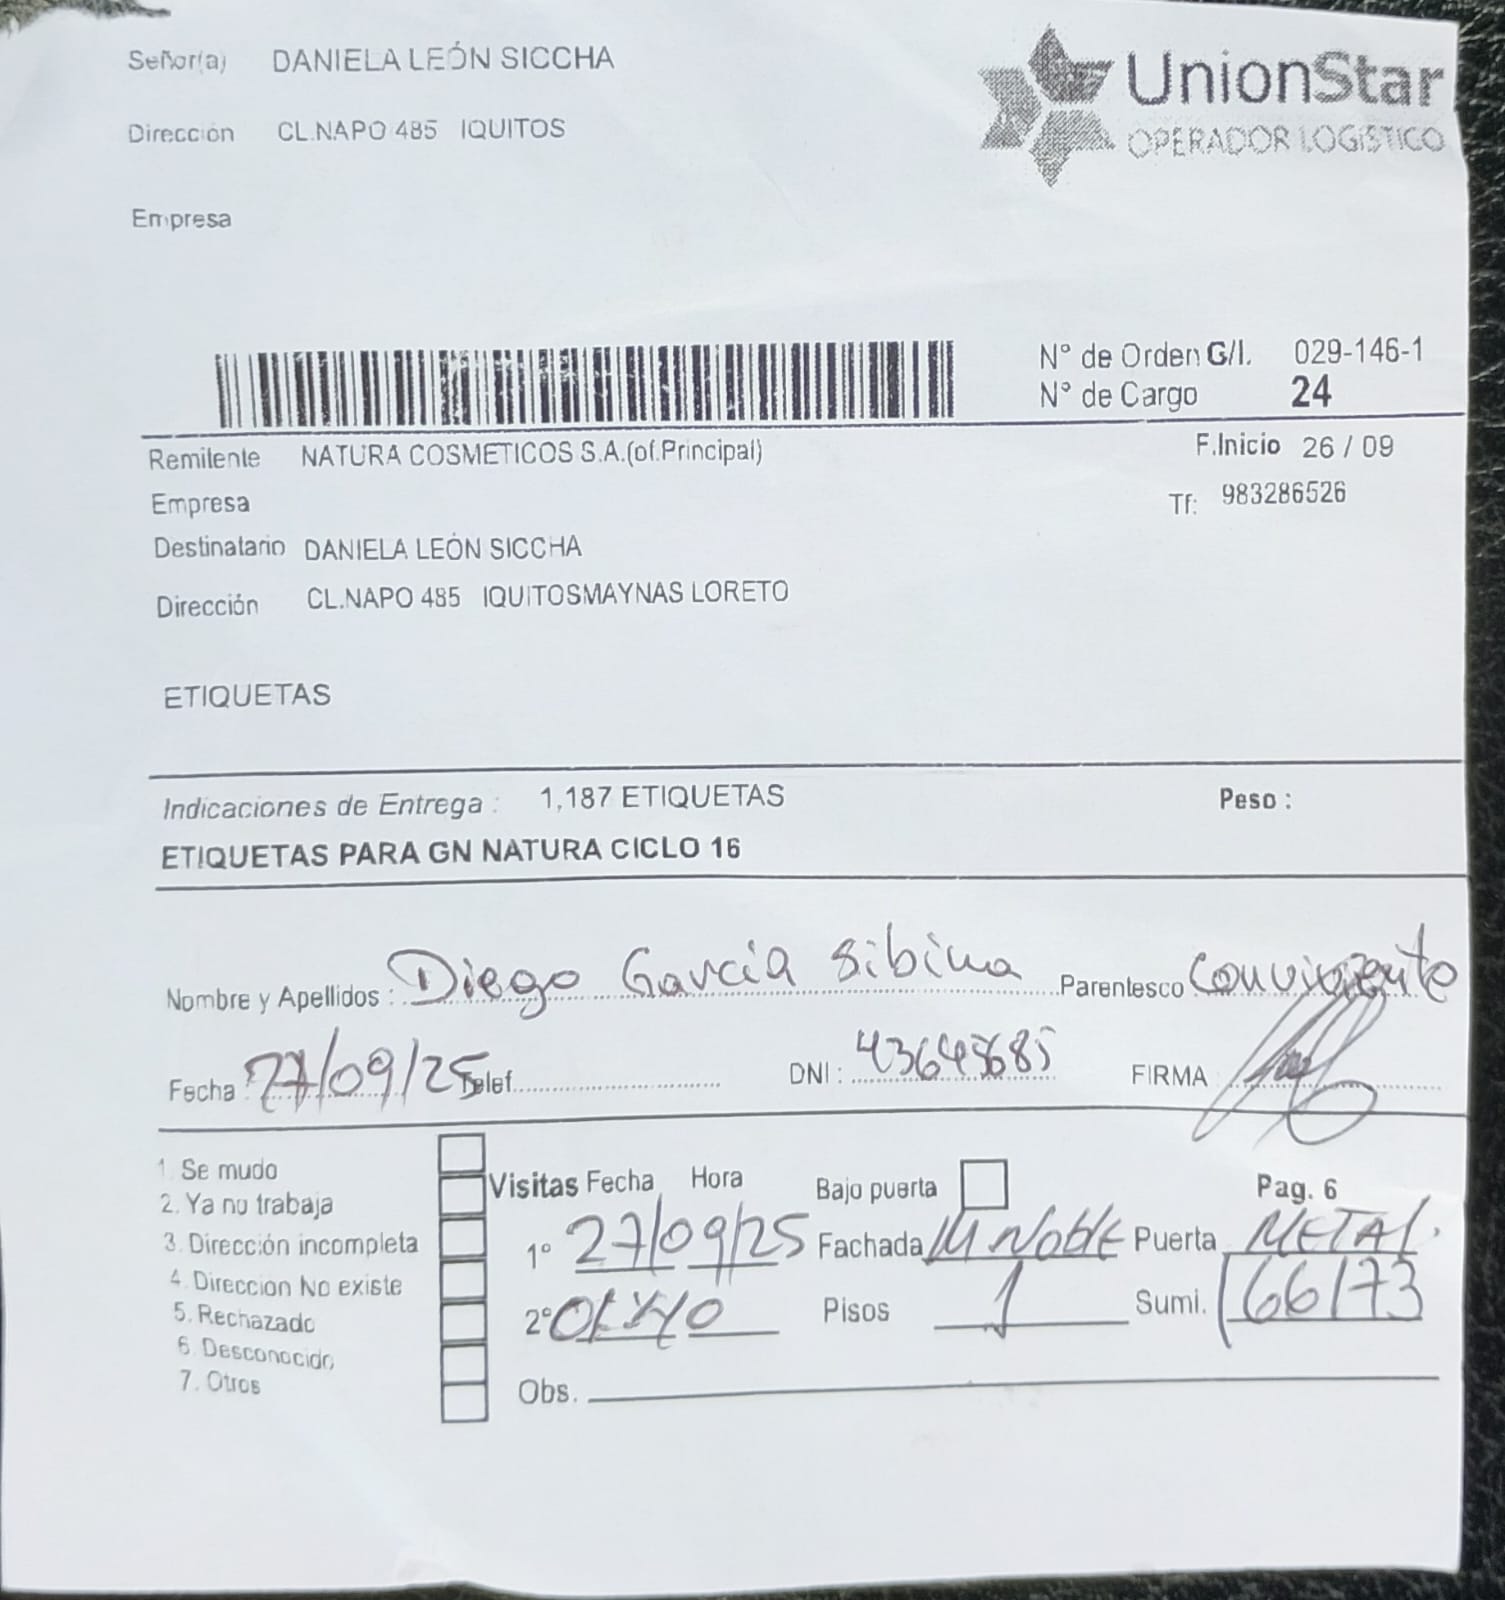 Señor(a) DANIELA LEÓN SICCHA
UnionStar
OPERADOR LOGÍSTICO
Dirección CL.NAPO 485 IQUITOS
Empresa
N° de Orden G/I. 029-146-1
N° de Cargo 24
Remitente NATURA COSMETICOS S.A.(of.Principal) F.Inicio 26 / 09
Empresa Tf: 983286526
Destinatario DANIELA LEÓN SICCHA
Dirección CL.NAPO 485 IQUITOSMAYNAS LORETO
ETIQUETAS
Indicaciones de Entrega : 1,187 ETIQUETAS Peso :
ETIQUETAS PARA GN NATURA CICLO 16
Nombre y Apellidos : Diego García Sibina Parentesco Conviviente
Fecha : 27/09/25 Telef. DNI : FIRMA
1. Se mudo
2. Ya no trabaja
3. Dirección incompleta
4. Dirección No existe
5. Rechazado
6. Desconocido
7. Otros
Visitas Fecha Hora Bajo puerta Pag. 6
1° 27/09/25 Fachada M NOBLE Puerta METAL.
2° Pisos 1 Sumi. 66173
Obs.